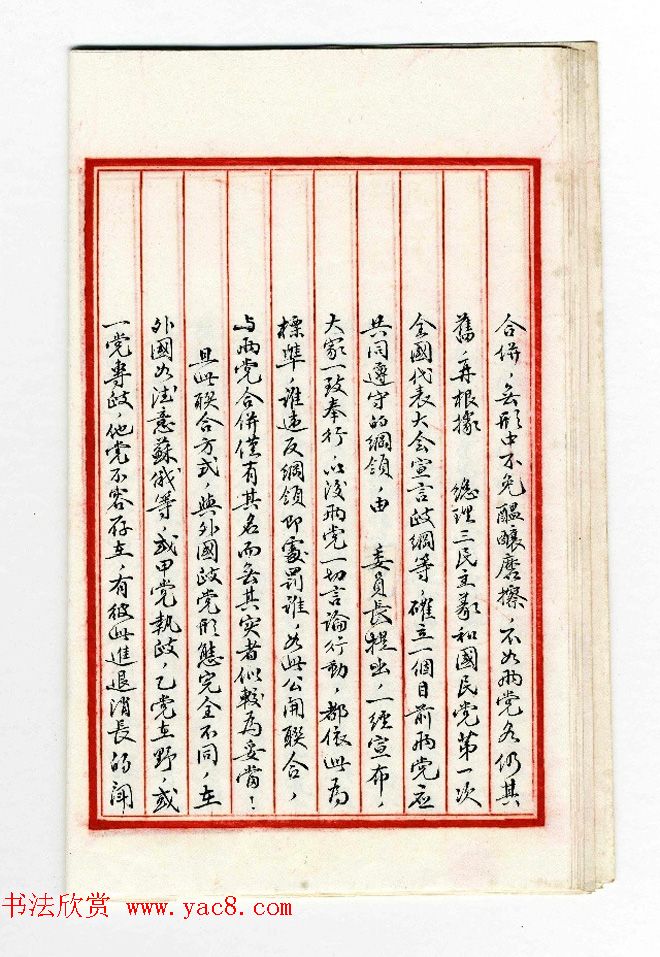 合併，無形中不免醖釀磨擦，不如兩党各仍其
舊，再根據　總理三民主義和國民党第一次
全國代表大会宣言政綱等，確立一個目前兩党应
共同遵守的綱領，由　委員長提出，一經宣布，
大家一致奉行，以後兩党一切言論行動，都依此為
標準，誰違反綱領即處罰誰，如此公開聯合，
与兩党合併僅有其名而無其实者似較為妥當：
且此联合方式，與外國政党形態完全不同，在
外國如德意蘇俄等，或甲党執政，乙党在野，或
一党專政，他党不容存在，有彼此進退消長的關
书法欣赏 www.yac8.com